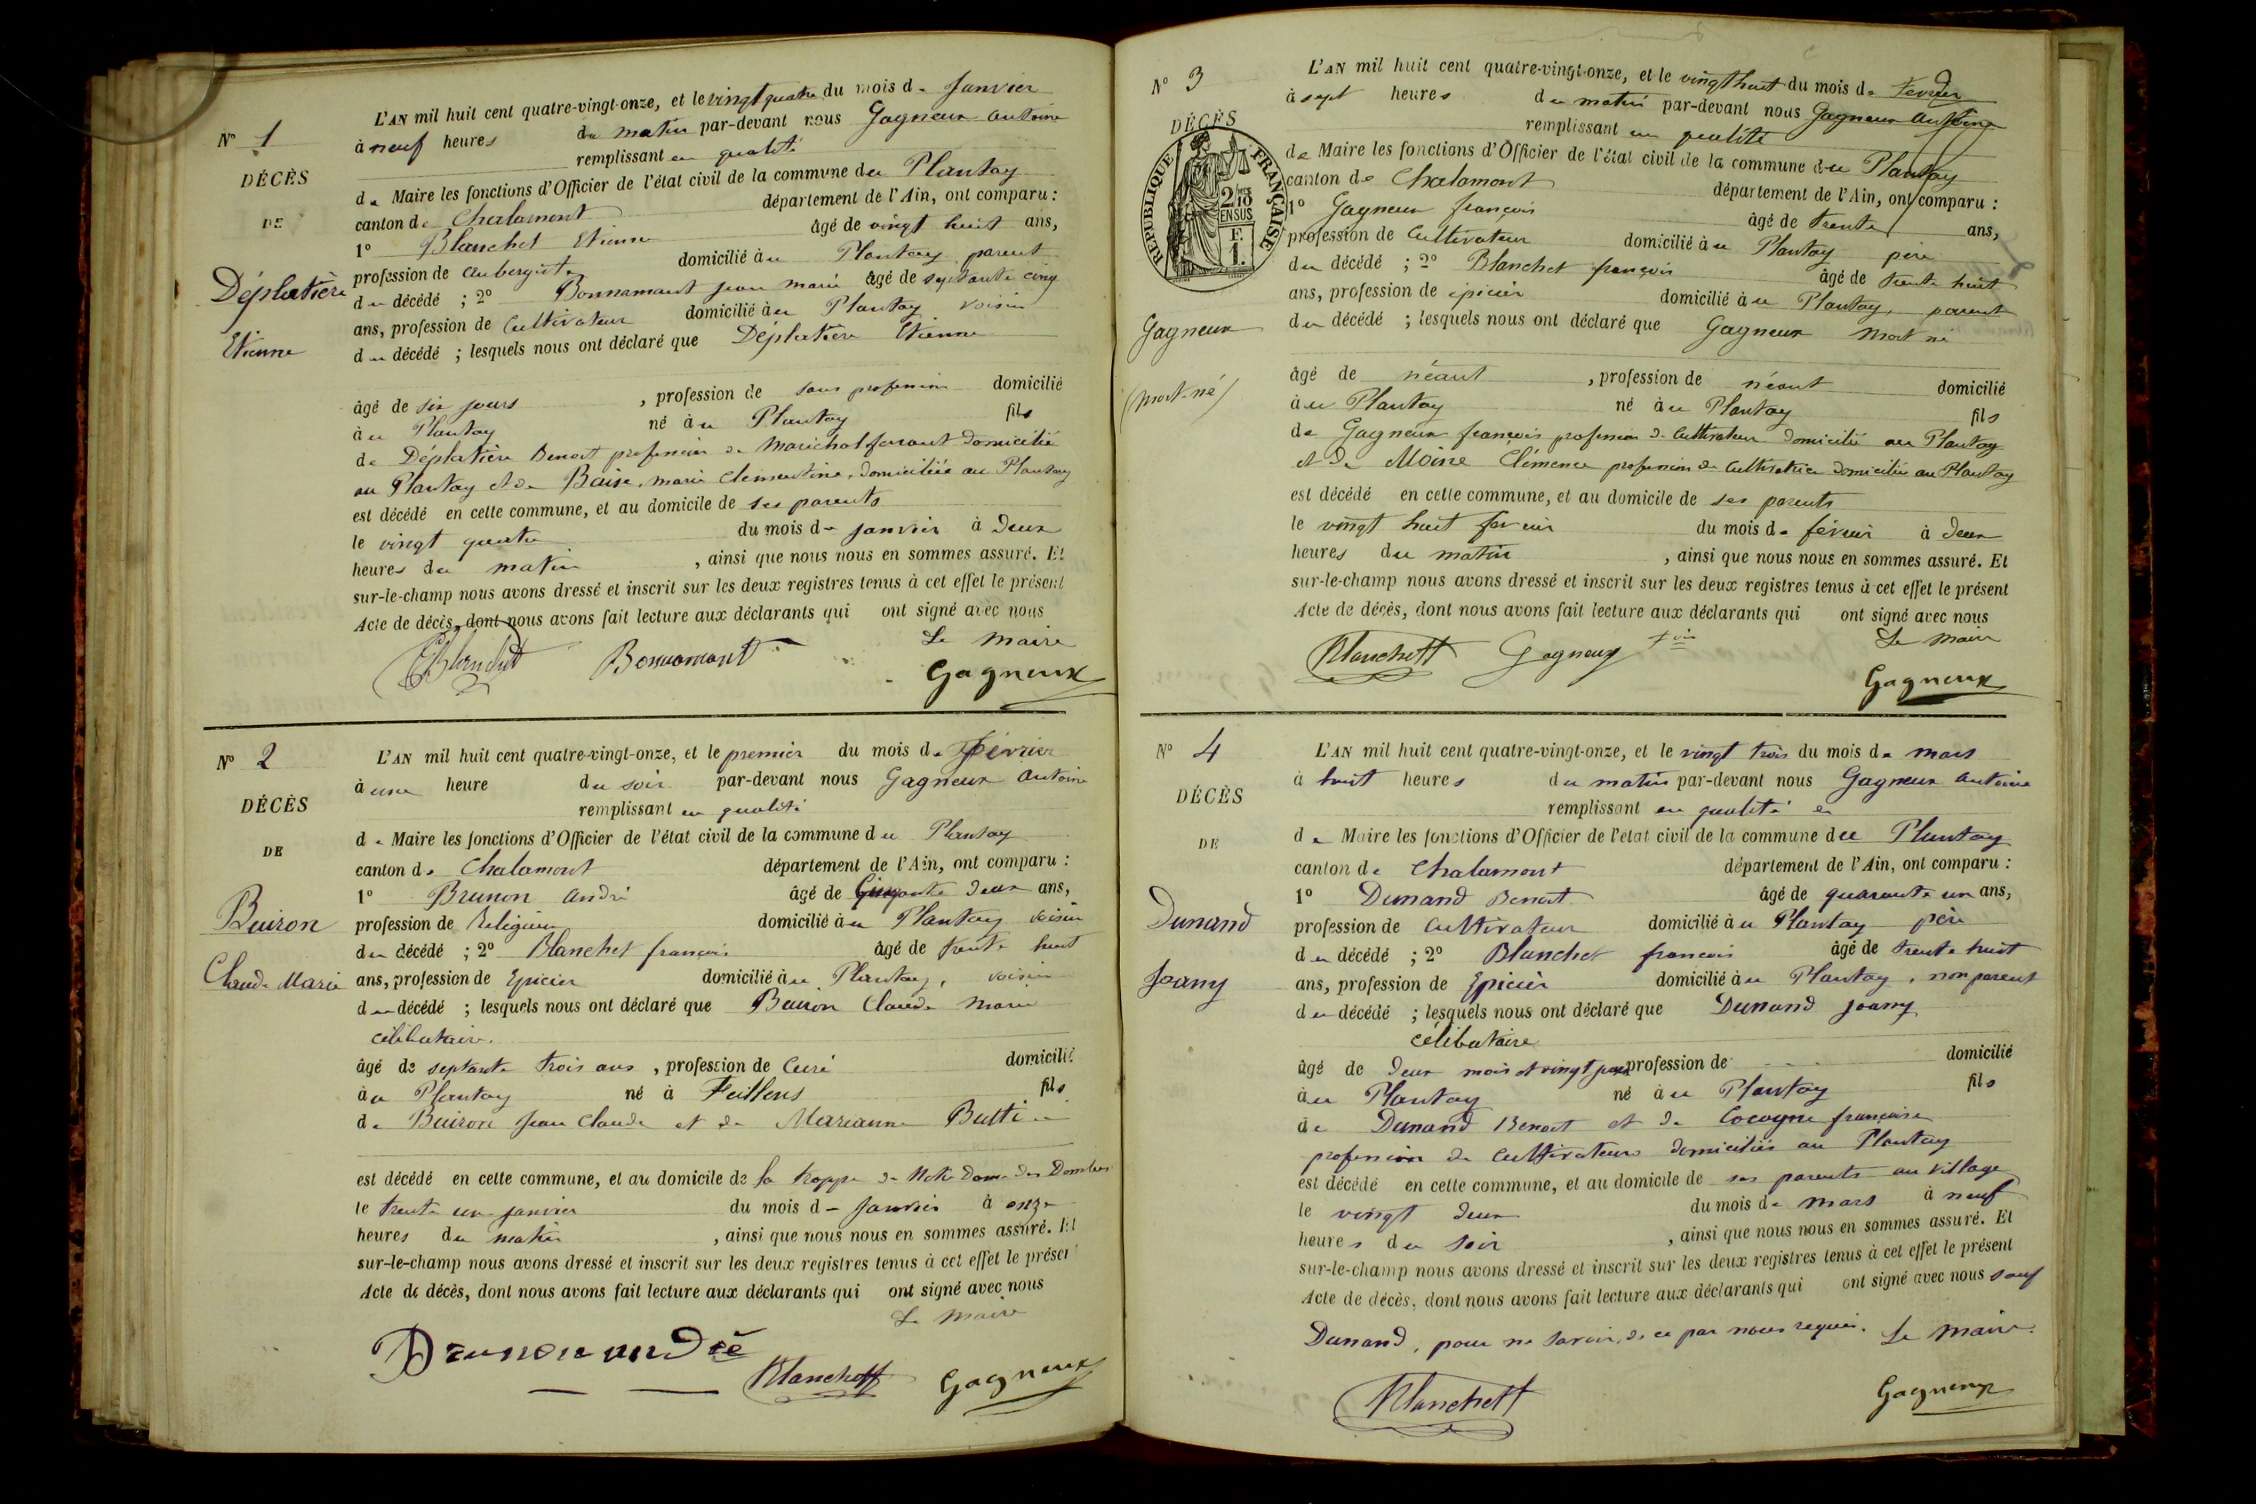 N° 1
DÉCÈS
DE
Déplatière
Etienne
L'AN mil huit cent quatre-vingt-onze, et le vingt quatre du mois de Janvier
à neuf heures du matin par-devant nous Gagneux Antoine
remplissant en qualité
de Maire les fonctions d'Officier de l'état civil de la commune du Plantay
canton de Chalamont département de l'Ain, ont comparu :
1° Blanchet Etienne âgé de vingt huit ans,
profession de aubergiste domicilié au Plantay parent
du décédé ; 2° Bonnamant jean marie âgé de septante cinq
ans, profession de Cultivateur domicilié au Plantay voisin
du décédé ; lesquels nous ont déclaré que Déplatière Etienne
âgé de six jours , profession de sans profession domicilié
au Plantay né au Plantay fils
de Déplatière Benoit profession de Maréchal ferrant domicilié
au Plantay et de Baise, marie Clémentine, domiciliée au Plantay
est décédé en cette commune, et au domicile de ses parents
le vingt quatre du mois de janvier à deux
heures du matin , ainsi que nous nous en sommes assuré. Et
sur-le-champ nous avons dressé et inscrit sur les deux registres tenus à cet effet le présent
Acte de décès, dont nous avons fait lecture aux déclarants qui ont signé avec nous
Le Maire
EBlanchet Bonnamant Gagneux
N° 2
DÉCÈS
DE
Buiron
Claude Marie
L'AN mil huit cent quatre-vingt-onze, et le premier du mois de février
à une heure du soir par-devant nous Gagneux Antoine
remplissant en qualité
de Maire les fonctions d'Officier de l'état civil de la commune du Plantay
canton de Chalamont département de l'Ain, ont comparu :
1° Brunon André âgé de Cinquante deux ans,
profession de Religieux domicilié au Plantay voisin
du décédé ; 2° Blanchet françois âgé de trente huit
ans, profession de Epicier domicilié au Plantay, voisin
du décédé ; lesquels nous ont déclaré que Buiron Claude Marie
célibataire.
âgé de septante trois ans , profession de Curé domicilié
au Plantay né à Feillens fils
de Buiron Jean Claude et de Marianne Butti
est décédé en cette commune, et au domicile de la trappe de Notre Dame des Dombes
le trente un janvier du mois de Janvier à onze
heures du matin , ainsi que nous nous en sommes assuré. Et
sur-le-champ nous avons dressé et inscrit sur les deux registres tenus à cet effet le présent
Acte de décès, dont nous avons fait lecture aux déclarants qui ont signé avec nous
Le Maire
Brunon andré Blanchett Gagneux
N° 3
DÉCÈS
RÉPUBLIQUE FRANÇAISE
2/10 EN SUS
F. 1.
Gagneux
(mort-né)
L'AN mil huit cent quatre-vingt-onze, et le vingt huit du mois de Février
à sept heures du matin par-devant nous Gagneux Antoine
remplissant en qualité
de Maire les fonctions d'Officier de l'état civil de la commune du Plantay
canton de Chalamont département de l'Ain, ont comparu :
1° Gagneux françois âgé de trente ans,
profession de Cultivateur domicilié au Plantay père
du décédé ; 2° Blanchet françois âgé de trente huit
ans, profession de épicier domicilié au Plantay, parent
du décédé ; lesquels nous ont déclaré que Gagneux Mort né
âgé de néant , profession de néant domicilié
au Plantay né au Plantay fils
de Gagneux françois profession de Cultivateur domicilié au Plantay
et de Moine Clémence profession de Cultivatrice domiciliée au Plantay
est décédé en cette commune, et au domicile de ses parents
le vingt huit fevrier du mois de février à deux
heures du matin , ainsi que nous nous en sommes assuré. Et
sur-le-champ nous avons dressé et inscrit sur les deux registres tenus à cet effet le présent
Acte de décès, dont nous avons fait lecture aux déclarants qui ont signé avec nous
Le Maire
Blanchett Gagneux Gagneux
N° 4
DÉCÈS
DE
Dunand
Joany
L'AN mil huit cent quatre-vingt-onze, et le vingt trois du mois de mars
à huit heures du matin par-devant nous Gagneux Antoine
remplissant en qualité en
de Maire les fonctions d'Officier de l'état civil de la commune du Plantay
canton de Chalamont département de l'Ain, ont comparu :
1° Dunand Benoit âgé de quarante un ans,
profession de Cultivateur domicilié au Plantay père
du décédé ; 2° Blanchet francois âgé de trente huit
ans, profession de Epicier domicilié au Plantay, non parent
du décédé ; lesquels nous ont déclaré que Dunand Joany
célibataire
âgé de deux mois et vingt jours profession de domicilié
au Plantay né au Plantay fils
de Dunand Benoit et de Cocogne françoise
profession de Cultivateurs domiciliés au Plantay
est décédé en cette commune, et au domicile de ses parents au village
le vingt deux du mois de mars à neuf
heures du soir , ainsi que nous nous en sommes assuré. Et
sur-le-champ nous avons dressé et inscrit sur les deux registres tenus à cet effet le présent
Acte de décès, dont nous avons fait lecture aux déclarants qui ont signé avec nous sauf
Dunand, pour ne savoir, de ce par nous requis. Le Maire
Blanchett Gagneux